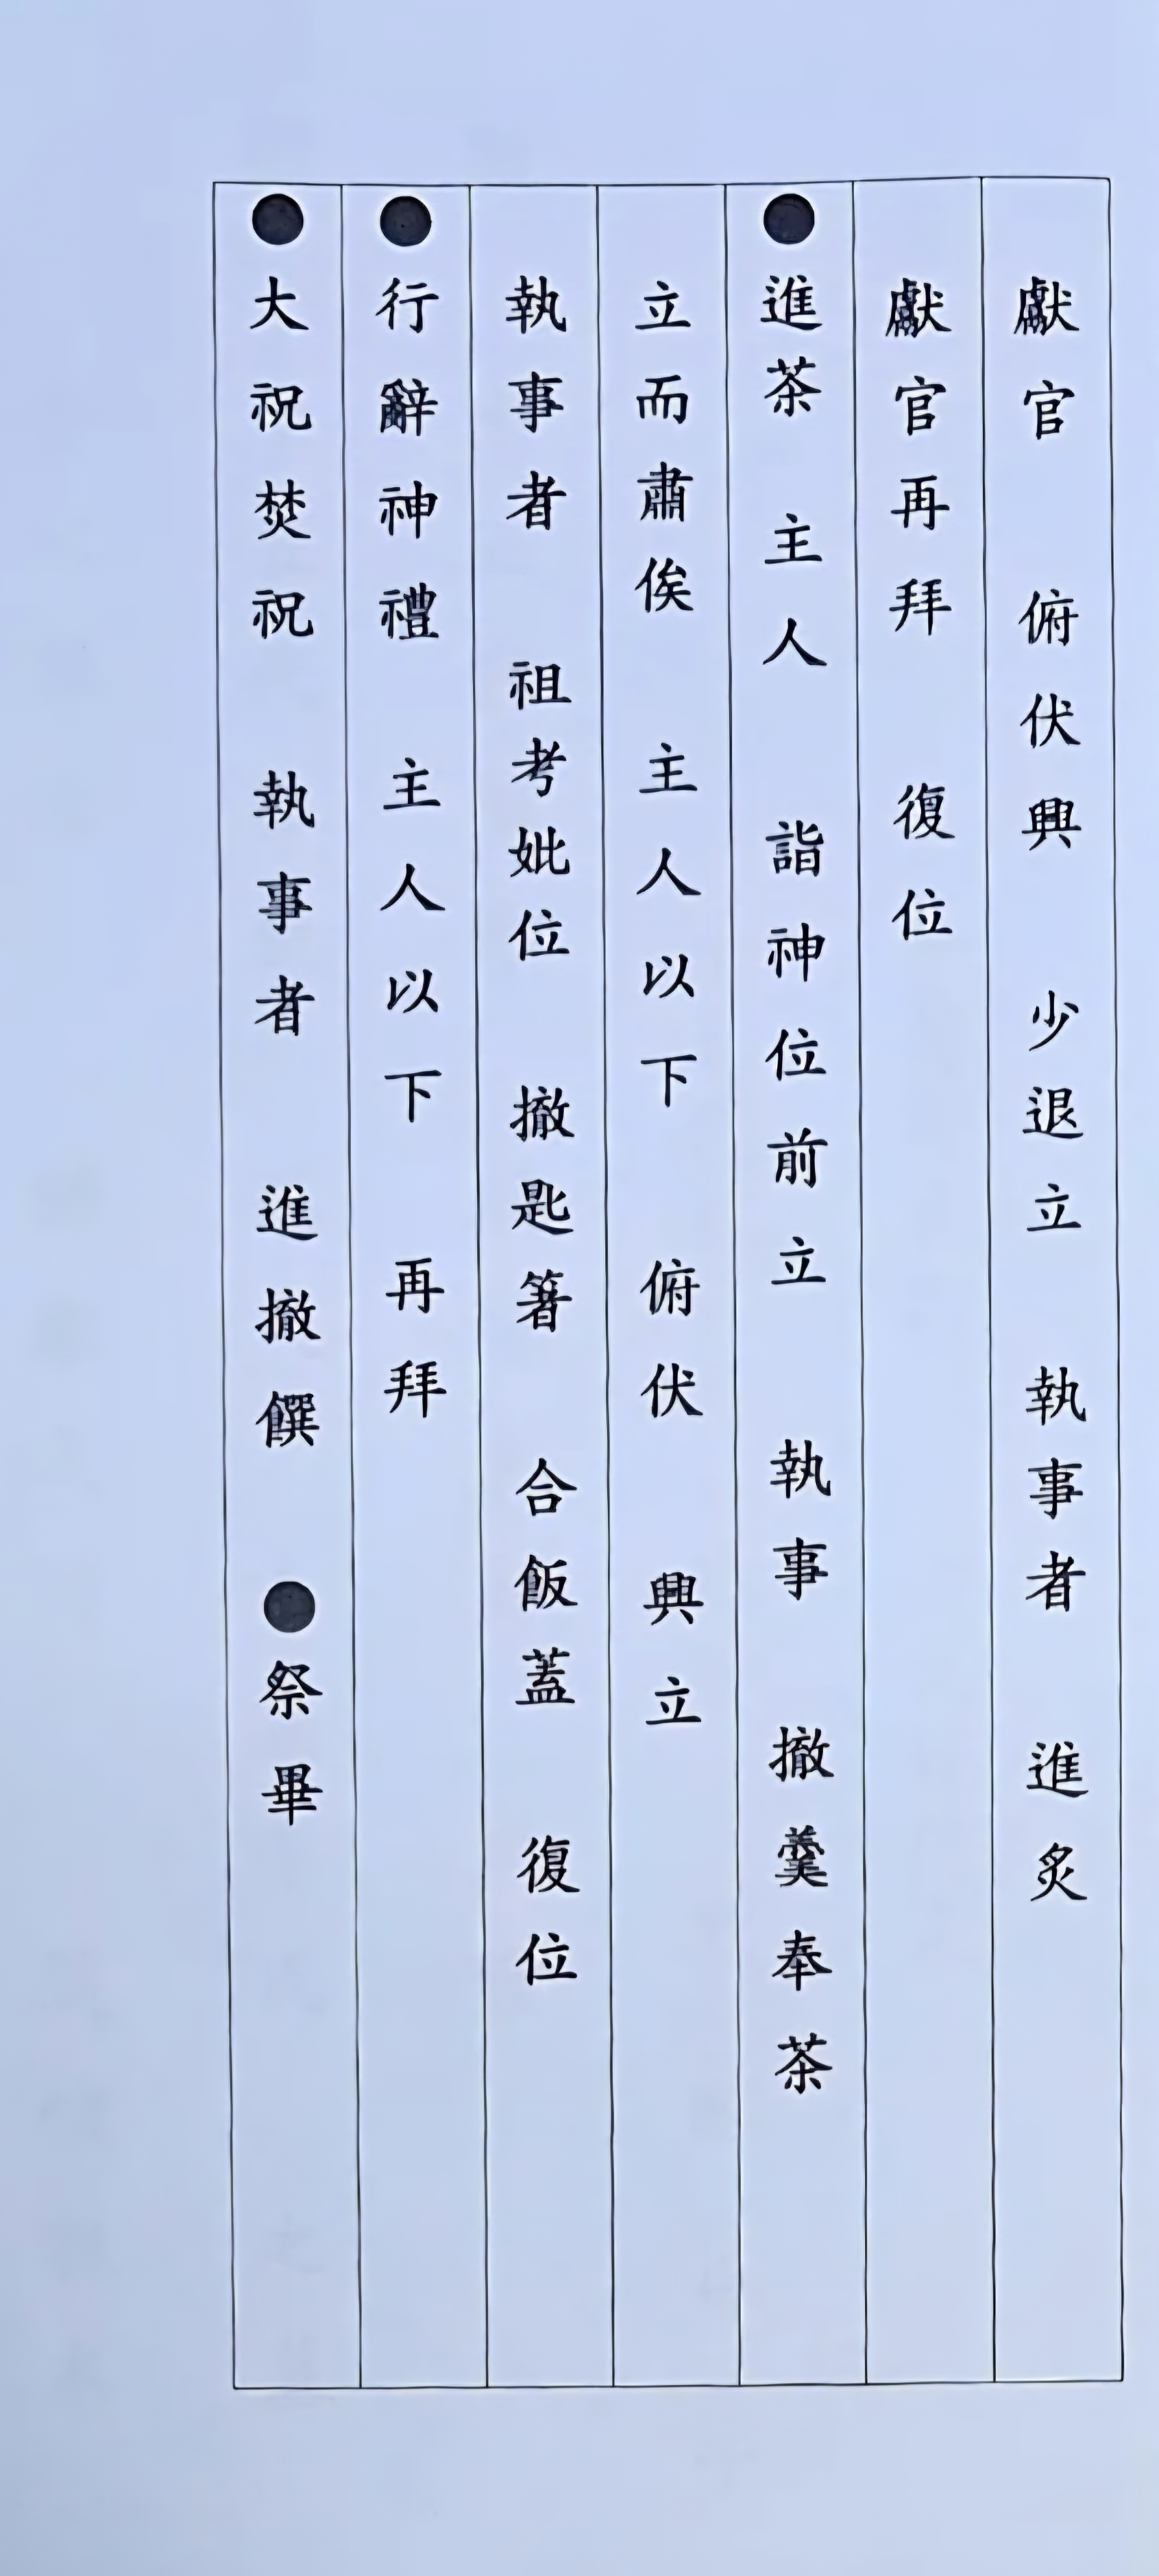 獻官 俯伏興 少退立 執事者 進炙
獻官再拜 復位
●進茶 主人 詣神位前立 執事 撤羹奉茶
立而肅俟 主人以下 俯伏 興立
執事者 祖考妣位 撤匙箸 合飯蓋 復位
●行辭神禮 主人以下 再拜
●大祝焚祝 執事者 進撤饌 ●祭畢